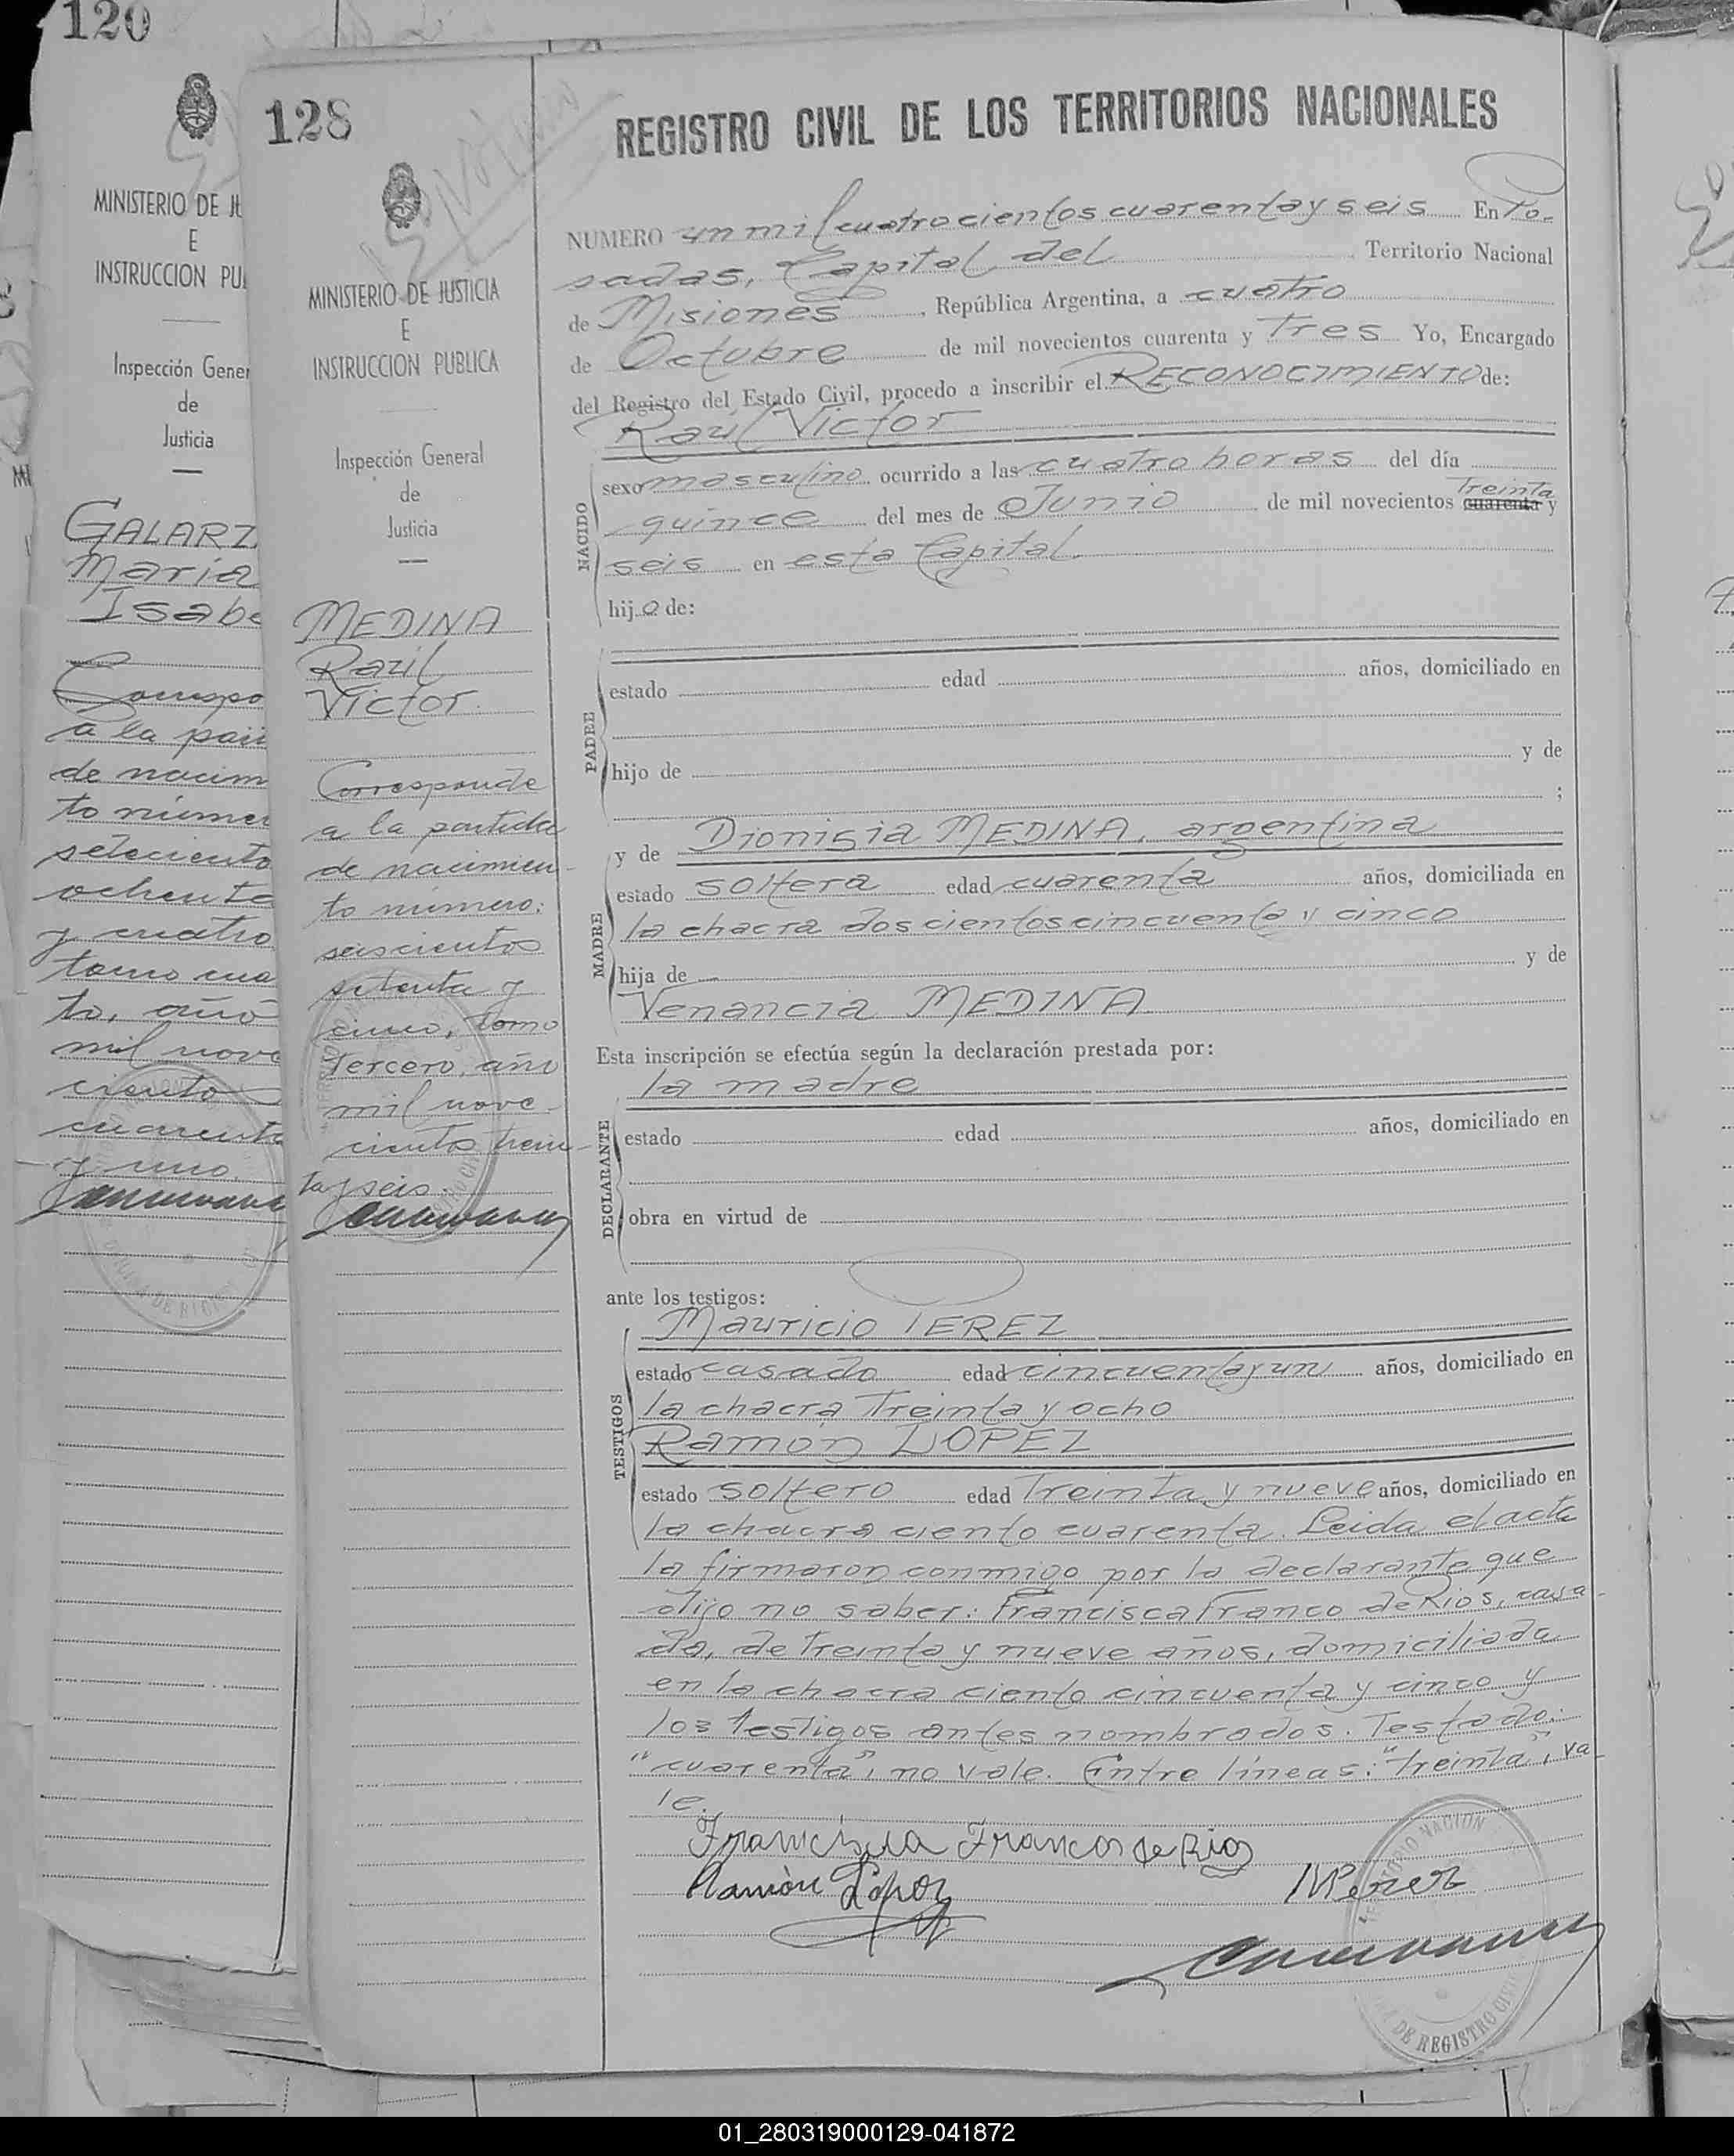 120
MINISTERIO DE JU
E
INSTRUCCION PU
Inspección Gener
de
Justicia
GALARZ
Maria
Isabe
Correspo
a la parti
de nacim
to númer
setecientos
ochenta
y cuatro
tomo cua
to, año
mil nove
ciento
cuarenta
y uno.
128
MINISTERIO DE JUSTICIA
E
INSTRUCCION PUBLICA
Inspección General
de
Justicia
MEDINA
Raúl
Victor.
Corresponde
a la partida
de nacimien-
to número:
seiscientos
setenta y
cinco, tomo
tercero, año
mil nove-
cientos trein-
ta y seis.
REGISTRO CIVIL DE LOS TERRITORIOS NACIONALES
NUMERO un mil cuatrocientos cuarenta y seis En Po-
sadas, Capital del Territorio Nacional
de Misiones, República Argentina, a cuatro
de Octubre de mil novecientos cuarenta y tres Yo, Encargado
del Registro del Estado Civil, procedo a inscribir el RECONOCIMIENTO de:
Raúl Victor
NACIDO
sexo masculino ocurrido a las cuatro horas del día
treinta
quince del mes de Junio de mil novecientos cuarenta y
seis en esta Capital.
hijo de:
PADRE
estado edad años, domiciliado en
hijo de y de
;
MADRE
y de Dionisia MEDINA, argentina
estado soltera edad cuarenta años, domiciliada en
la chacra doscientos cincuenta y cinco
hija de — y de
Venancia MEDINA
Esta inscripción se efectúa según la declaración prestada por:
la madre
DECLARANTE
estado edad años, domiciliado en
obra en virtud de
ante los testigos:
TESTIGOS
Mauricio PEREZ
estado casado edad cincuenta y un años, domiciliado en
la chacra treinta y ocho
Ramón LOPEZ
estado soltero edad treinta y nueve años, domiciliado en
la chacra ciento cuarenta. Leida el acta
la firmaron conmigo por la declarante que
dijo no saber: Francisca Franco de Rios, casa-
da, de treinta y nueve años, domiciliada
en la chacra ciento cincuenta y cinco y
los testigos antes nombrados. Testado:
"cuarenta", no vale. Entre líneas: "treinta", va-
le.
Francisca Franco de Rios
Ramón López
MPerez
TERRITORIO NACION
DE REGISTRO CIVIL
01_280319000129-041872